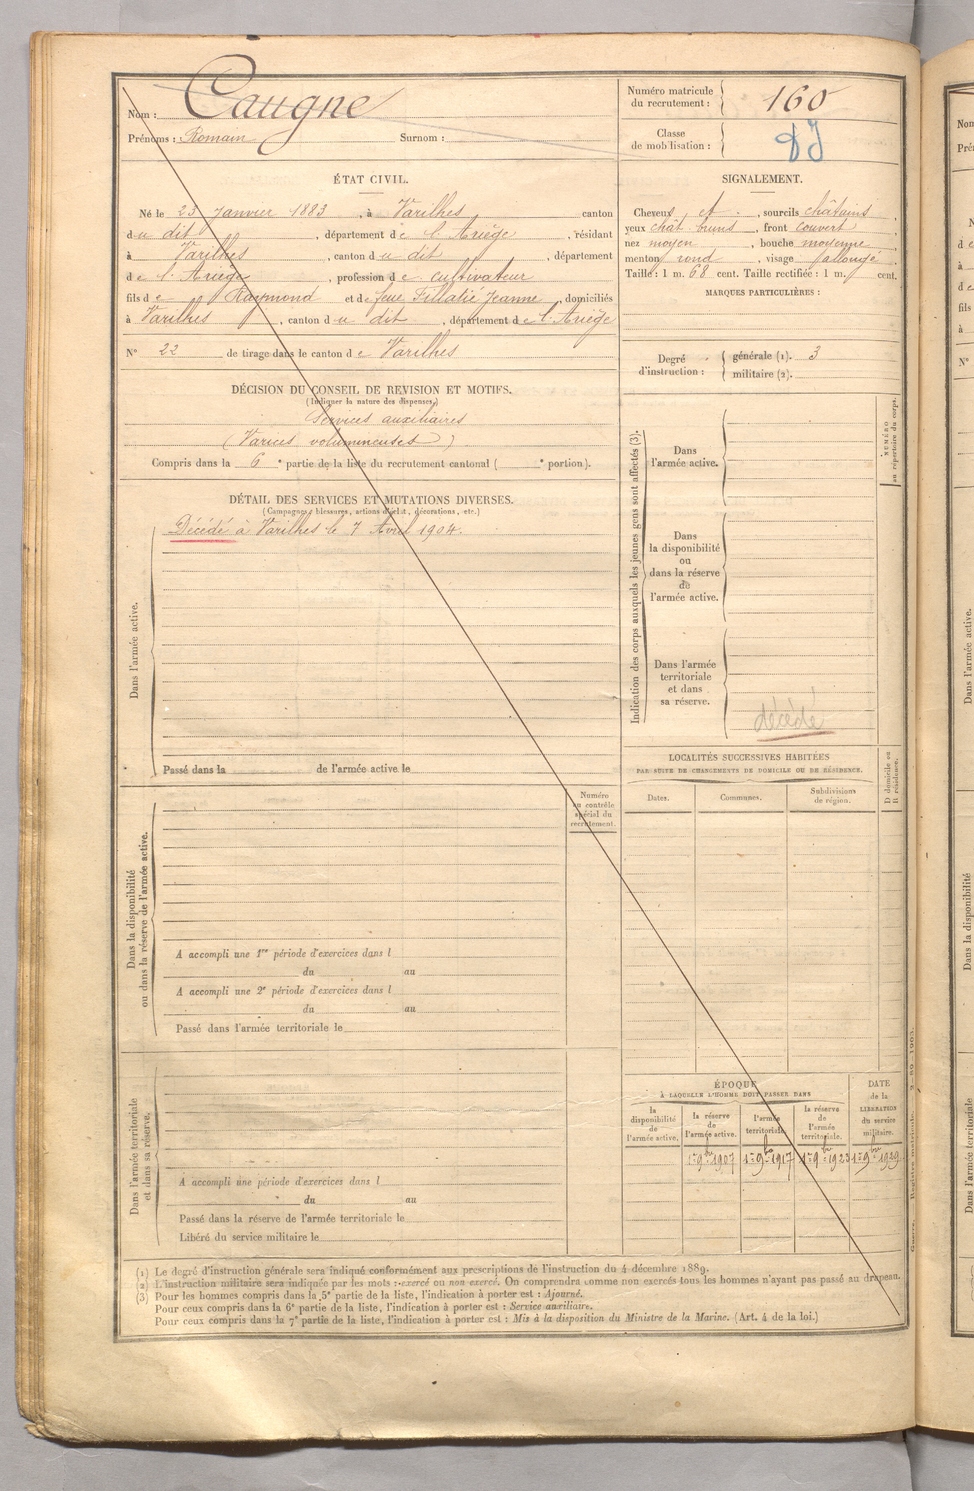 Nom : Caugne
Prénoms : Romain Surnom :
Numéro matricule du recrutement : 160
Classe de mobilisation :
ÉTAT CIVIL.
Né le 23 Janvier 1883, à Varilhes canton
du dit, département de l'Ariège, résidant
à Varilhes, canton du dit, département
de l'Ariège, profession de cultivateur
fils de Raymond et de feue Fillatié Jeanne, domiciliés
à Varilhes, canton du dit, département de l'Ariège
N° 22 de tirage dans le canton de Varilhes
SIGNALEMENT.
Cheveux et, sourcils châtains,
yeux chât bruns, front couvert
nez moyen, bouche moyenne
menton rond, visage allongé.
Taille : 1 m. 68 cent. Taille rectifiée : 1 m. cent.
MARQUES PARTICULIÈRES :
Degré d'instruction : générale (1). 3
militaire (2).
DÉCISION DU CONSEIL DE REVISION ET MOTIFS.
(Indiquer la nature des dispenses.)
Services auxiliaires
(Varices volumineuses)
Compris dans la 6e partie de la liste du recrutement cantonal ( e portion).
DÉTAIL DES SERVICES ET MUTATIONS DIVERSES.
(Campagnes, blessures, actions d'éclat, décorations, etc.)
Dans l'armée active.
Décédé à Varilhes le 7 Avril 1904.
Passé dans la de l'armée active le
Indication des corps auxquels les jeunes gens sont affectés (3).
NUMÉRO au répertoire du corps.
Dans l'armée active.
Dans la disponibilité ou dans la réserve de l'armée active.
Dans l'armée territoriale et dans sa réserve.
décédé
LOCALITÉS SUCCESSIVES HABITÉES
PAR SUITE DE CHANGEMENTS DE DOMICILE OU DE RÉSIDENCE.
Dates. Communes. Subdivisions de région. D domicile ou R résidence.
Numéro au contrôle spécial du recrutement.
Dans la disponibilité ou dans la réserve de l'armée active.
A accompli une 1re période d'exercices dans l
du au
A accompli une 2e période d'exercices dans l
du au
Passé dans l'armée territoriale le
Dans l'armée territoriale et dans sa réserve.
A accompli une période d'exercices dans l
du au
Passé dans la réserve de l'armée territoriale le
Libéré du service militaire le
ÉPOQUE
À LAQUELLE L'HOMME DOIT PASSER DANS
la disponibilité de l'armée active.
la réserve de l'armée active.
l'armée territoriale.
la réserve de l'armée territoriale.
DATE de la LIBÉRATION du service militaire.
1er 9bre 1907 1er 9bre 1917 1er 9bre 1923 1er 9bre 1929
(1) Le degré d'instruction générale sera indiqué conformément aux prescriptions de l'instruction du 4 décembre 1889.
(2) L'instruction militaire sera indiquée par les mots : exercé ou non exercé. On comprendra comme non exercés tous les hommes n'ayant pas passé au drapeau.
(3) Pour les hommes compris dans la 5e partie de la liste, l'indication à porter est : Ajourné.
Pour ceux compris dans la 6e partie de la liste, l'indication à porter est : Service auxiliaire.
Pour ceux compris dans la 7e partie de la liste, l'indication à porter est : Mis à la disposition du Ministre de la Marine. (Art. 4 de la loi.)